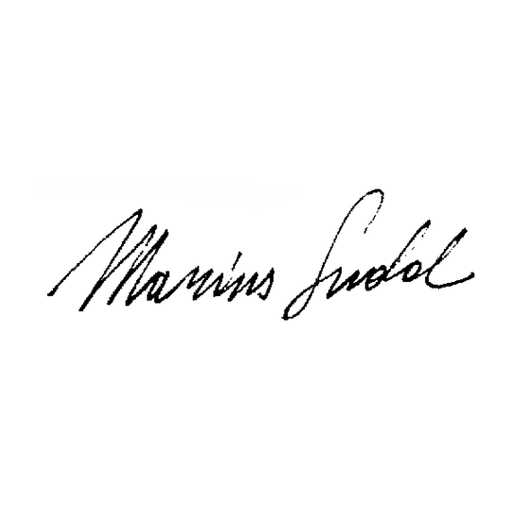 Marius Sudol